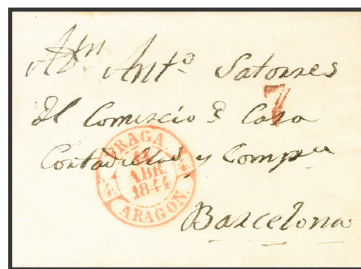 Dn Anto Satorres
Del Comercio Casa
y Compa
Barcelona
7
FRAGA
ABR
1844
ARAGON.